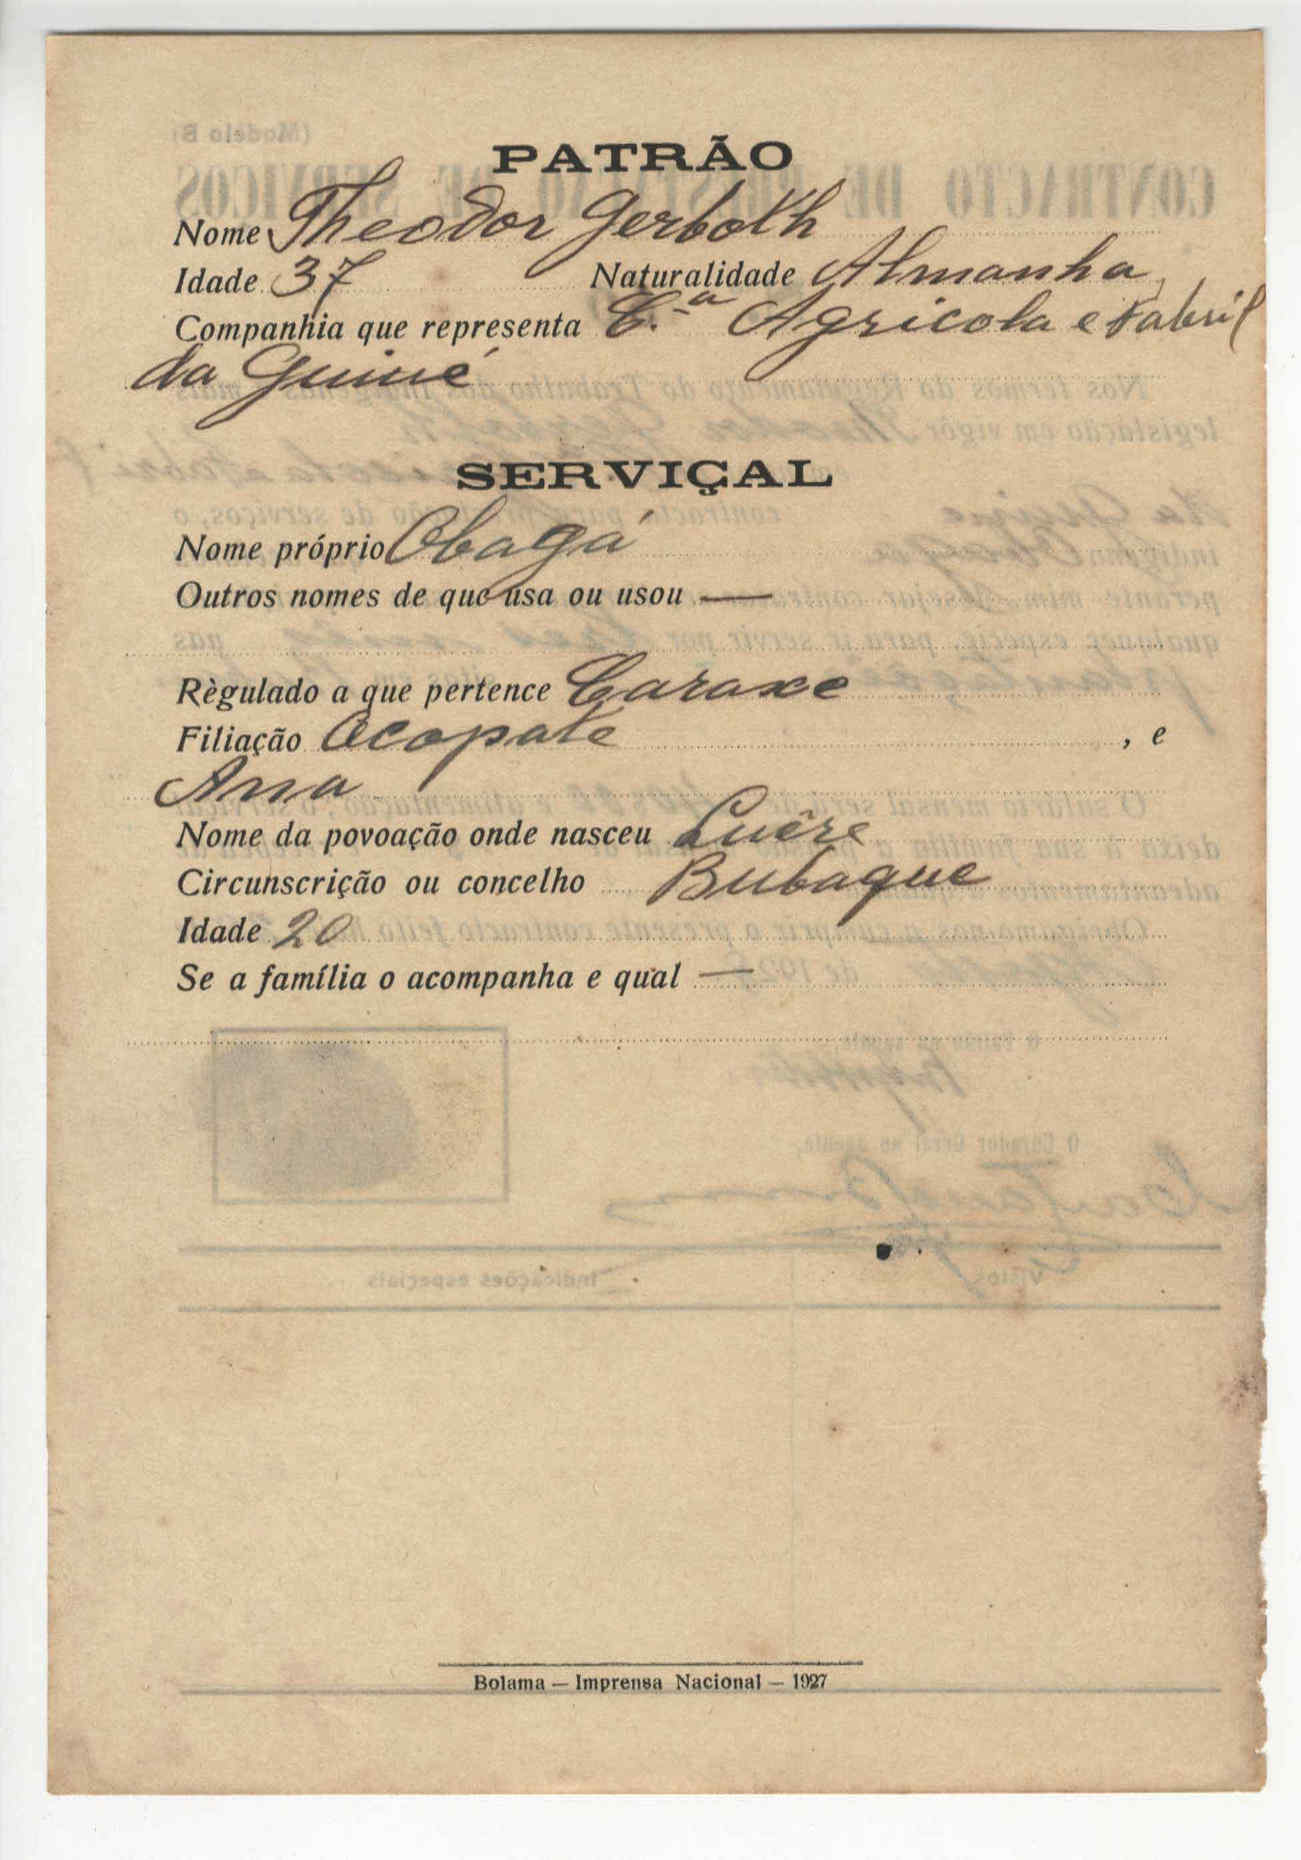 PATRÃO
Nome Theodor Gerboth
Idade 37 Naturalidade Almanha
Companhia que representa C.ª Agricola e Fabril
da Guiné
SERVIÇAL
Nome próprio Obagá
Outros nomes de que usa ou usou —
Règulado a que pertence Caraxe
Filiação Acopate, e
Ana
Nome da povoação onde nasceu Luêre
Circunscrição ou concelho Bubaque
Idade 20
Se a família o acompanha e qual —
Bolama — Imprensa Nacional — 1927